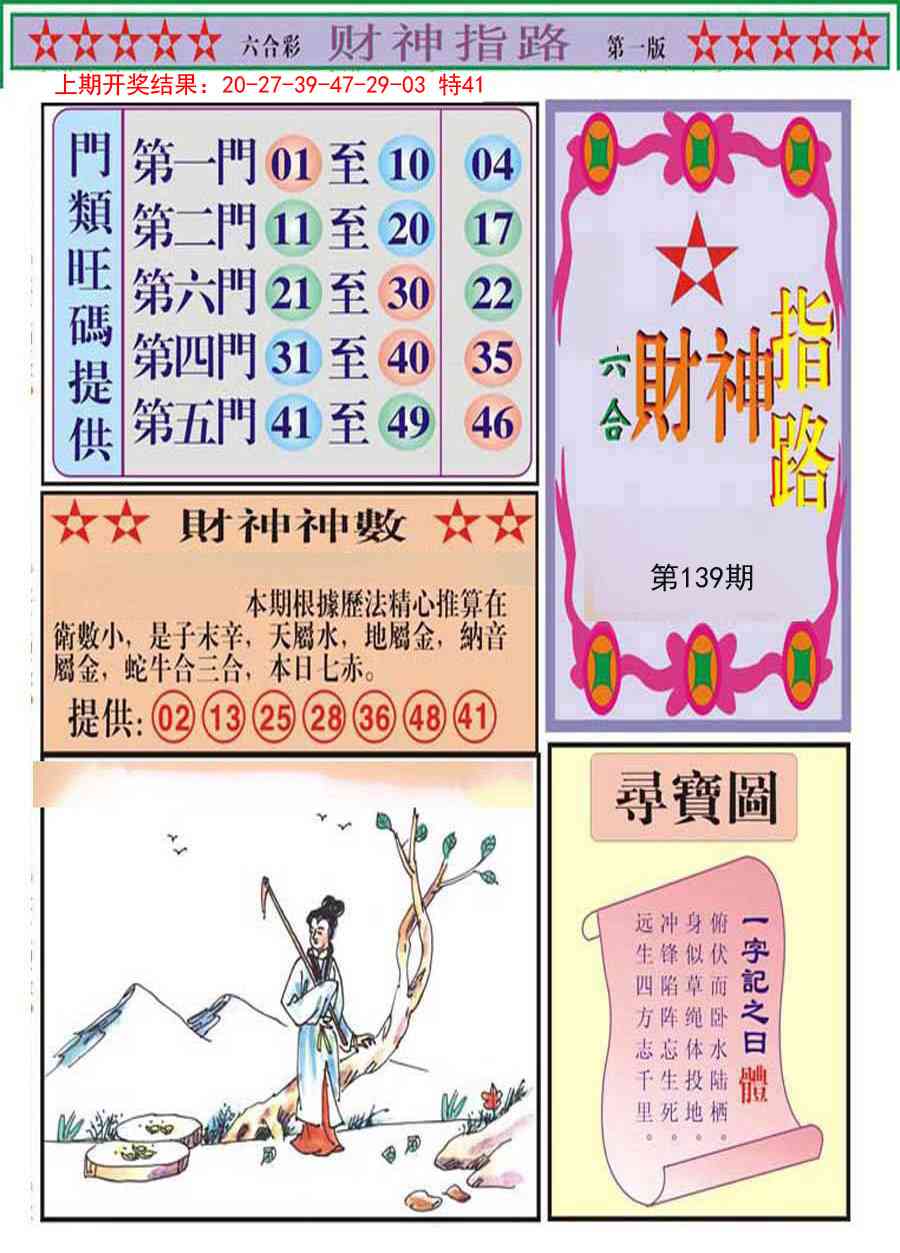 六合彩 财神指路 第一版
上期开奖结果：20-27-39-47-29-03 特41
門類旺碼提供
第一門 01 至 10 04
第二門 11 至 20 17
第六門 21 至 30 22
第四門 31 至 40 35
第五門 41 至 49 46
六合
財神
指路
第139期
財神神數
本期根據歷法精心推算在
衛數小，是子末辛，天屬水，地屬金，納音
屬金，蛇牛合三合，本日七赤。
提供: 02 13 25 28 36 48 41
尋寶圖
一字記之曰 體
俯伏而卧水陆栖。
身似草绳体投地。
冲锋陷阵忘生死。
远生四方志千里。